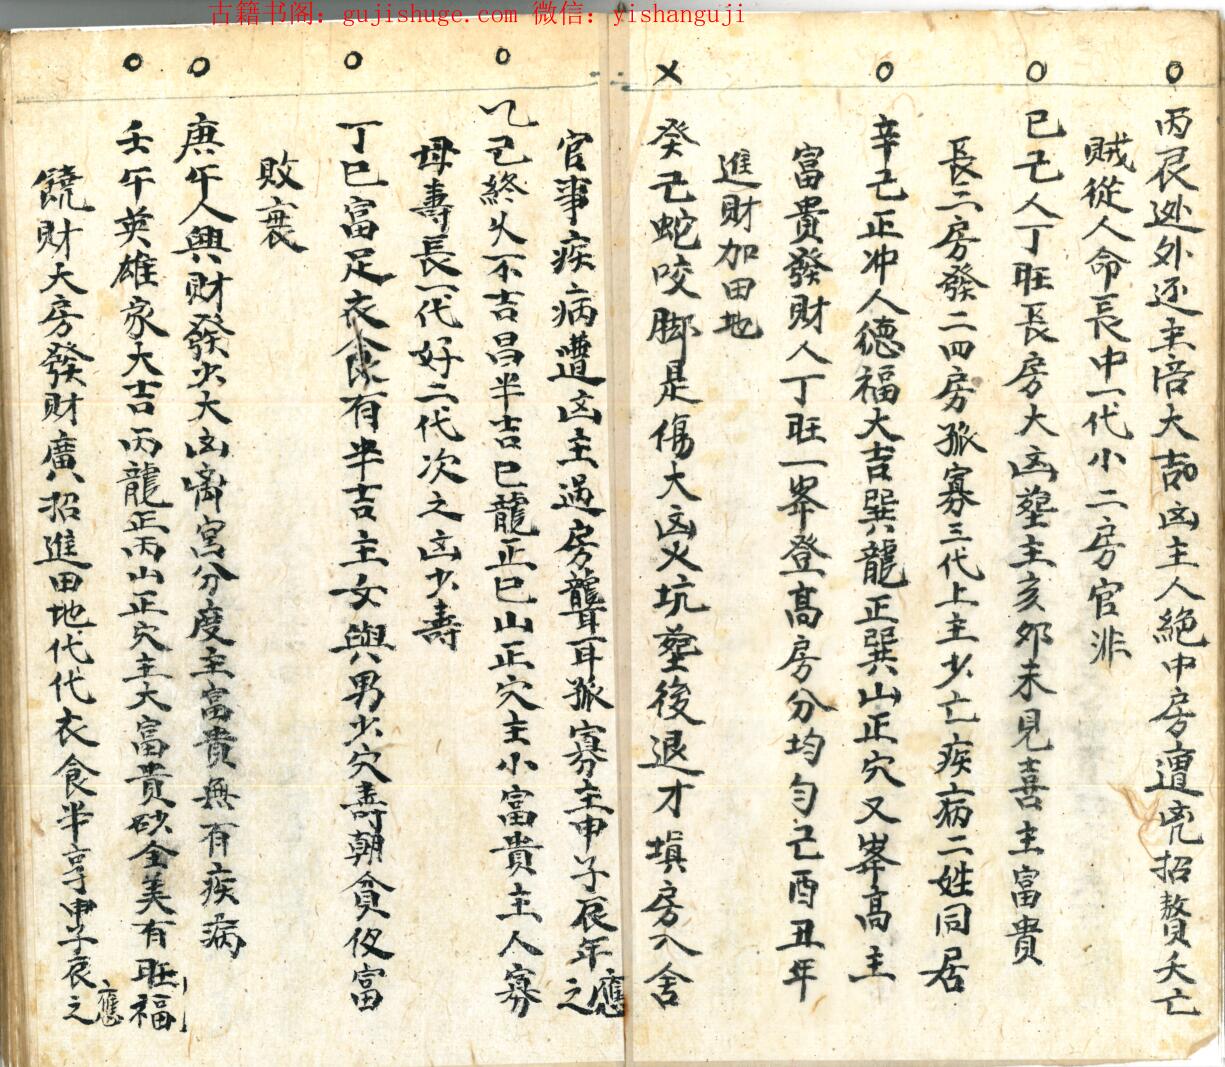 古籍书阁：gujishuge.com 微信：yishanguji
丙辰逊外还主倍大吉凶主人絕中房遭兇招贅夭亡
賊從人命長中一代小二房官非
已己人丁旺長房大凶塟主亥夘未見喜主富貴
長三房發二四房孤寡三代上主少亡疾病二姓同居
辛己正冲人德福大吉巽龍正巽山正穴又峯高主
富貴發財人丁旺一峯登高房分均匀己酉丑年
進財加田地
癸己蛇咬脚是傷大凶火坑塟後退才塡房入舍
官事疾病遭凶主過房聾耳孤寡主申子辰年應之
乙己終久不吉昌半吉巳龍正巳山正穴主小富貴主人寡
母壽長一代好二代次之凶少壽
丁巳富足衣食有半吉主女與男少穴壽朝貧夜富
敗衰
庚午人興財發少大凶离宮分度主富貴無有疾病
壬午英雄家大吉丙龍正丙山正穴主大富貴砂全美有旺福
饒財大房發財廣招進田地代代衣食半享申子辰之應